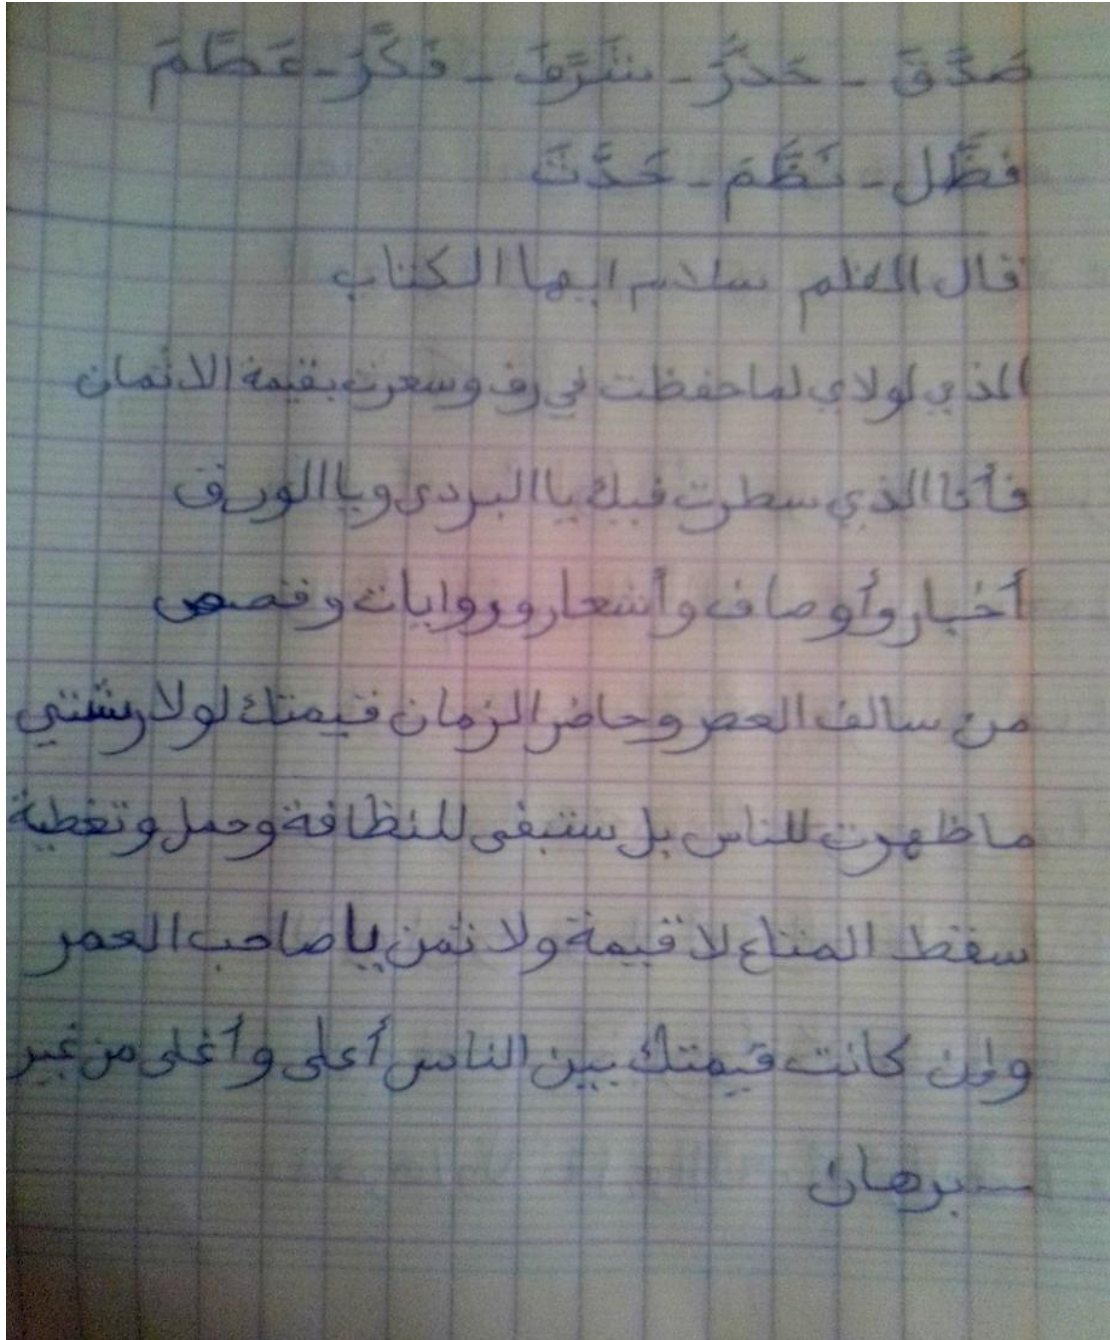 صَدَّقَ - حَذَّرَ - شَرَّفَ - فَكَّرَ - عَظَّمَ
فضَّل - نَظَّمَ - حَدَّثَ
قال القلم سلام ايها الكتاب
الذي لولاي لما حفظت في رف وسعرت بقيمة الاثمان
فأنا الذي سطرت فيك يا البردي ويا الورق
أخبار وأوصاف وأشعار وروايات وقصص
من سالف العصر وحاضر الزمان قيمتك لولا ريشتي
ما ظهرت للناس بل ستبقى للنظافة وحمل وتغطية
سقط المتاع لا قيمة ولا ثمن يا صاحب العمر
ولن كانت قيمتك بين الناس أعلى وأغلى من غير
برهان